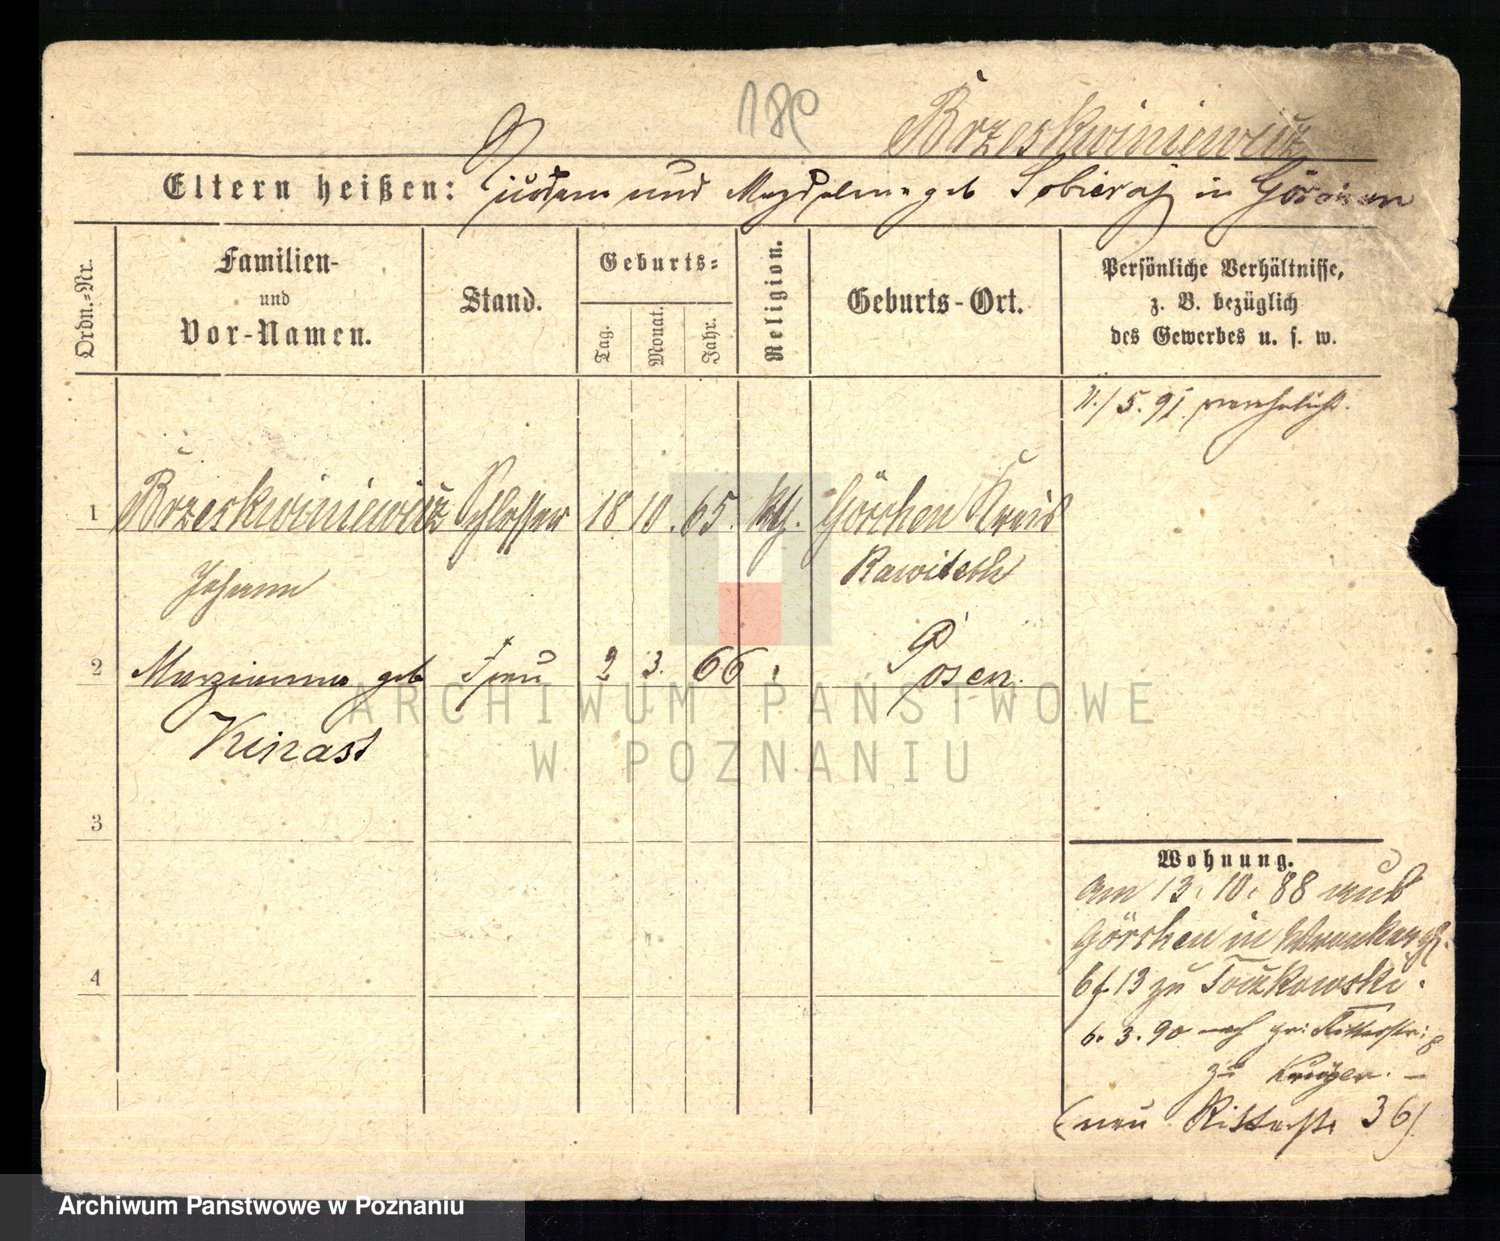 189
Brzeskwiniewicz
Eltern heißen: und Magdalena geb Sobieraj in Görchen
Ordn.-Nr.
Familien-
und
Vor-Namen.
Stand.
Geburts-
Tag. Monat. Jahr.
Religion.
Geburts-Ort.
Persönliche Verhältnisse,
z. B. bezüglich
des Gewerbes u. s. w.
/5.91 verehelicht.
1 Brzeskwiniewicz Schlosser 18 10. 65. kth. Görchen Kreis
Johann Rawitsch
2 Marzianna geb Frau 2 3. 66 Posen.
Kinast
3
4
Wohnung.
am 13. 10. 88 aus
Görchen in Wronkerstr.
6/13 zu Toczkowski.
6. 3. 90 nach gr: Ritterstr: 8
zu Krüger. –
(neu Ritterstr 36)
ARCHIWUM PAŃSTWOWE
W POZNANIU
Archiwum Państwowe w Poznaniu